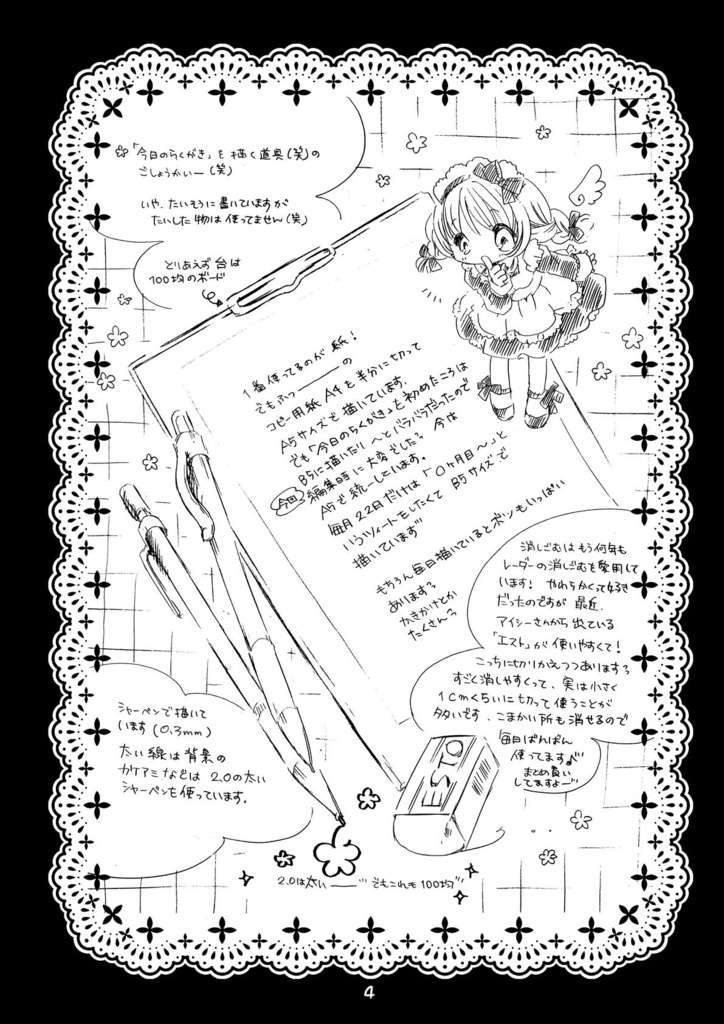 「今日のらくがき」を描く道具(笑)の
ごしょうかいー(笑)
いや、たいそうに書いていますが
たいした物は使ってません(笑)
とりあえず台は
100均のボード
1番使ってるのが紙!
でもふつーーーの
コピー用紙A4を半分に切って
A5サイズで描いています。
でも「今日のらくがき」を初めたころは
B5に描いたり〜とバラバラだったので
今回編集時に大変でした? 今は
A5で統一しています。
毎月22日だけは「0ヶ月目〜」と
いうツイートをしたくてB5サイズで
描いています
もちろん毎日描いているとボツもいっぱい
あります?
かきかけとか
たくさん?
消しごむはもう何年も
レーダーの消しごむを愛用して
います! やわらかくって好き
だったのですが最近
アイシーさんから出ている
「エスト」が使いやすくて!
こっちに切りかえつつあります?
すごく消しやすくって、実は小さく
1cmくらいに切って使うことが
多いです、こまかい所も消せるので
毎日ばんばん
使ってます♪
まとめ買い
してますよー
シャーペンで描いて
います(0.3mm)
太い線は背景の
カケアミなどは2.0の太い
シャーペンを使っています。
ESTO
2.0は太いーー でもこれも100均
4